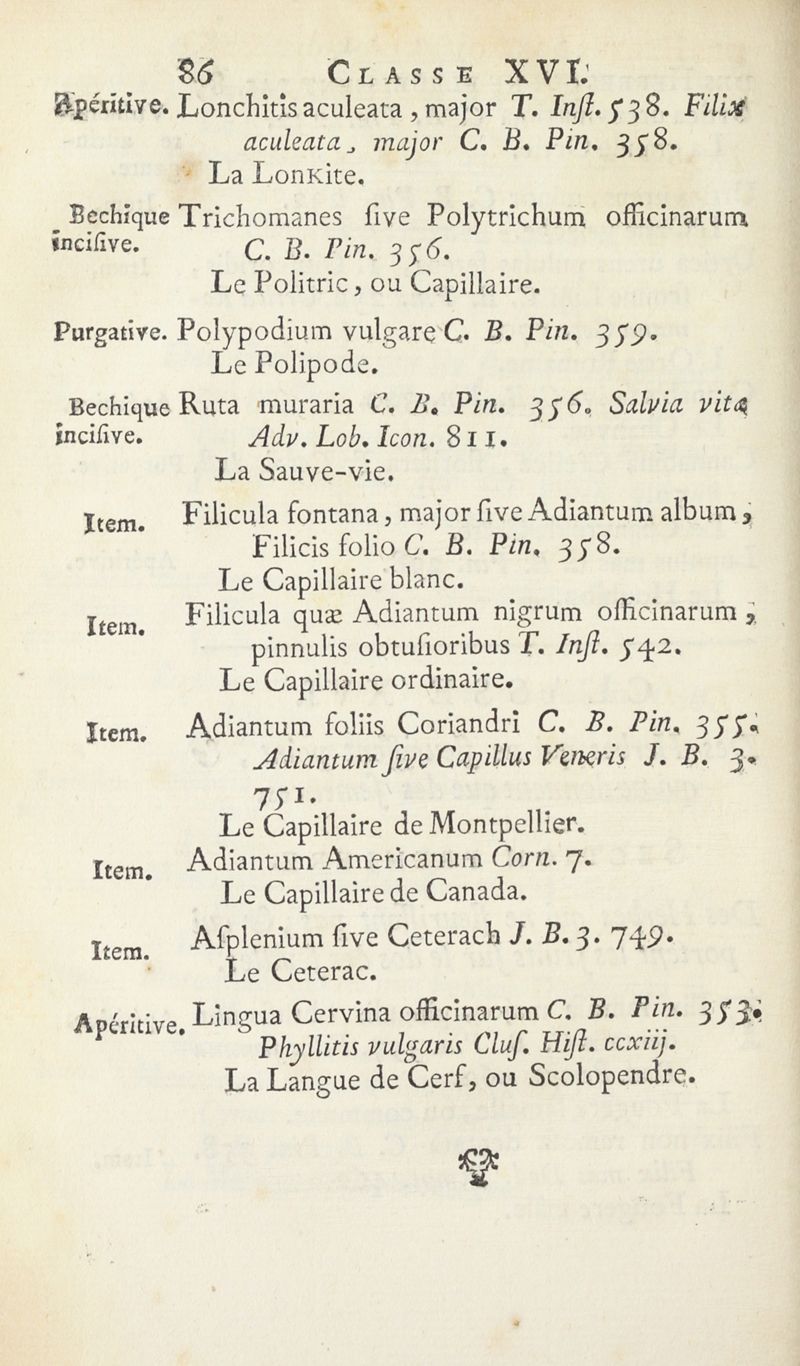 86 CLASSE XVI.
Apéritive. Lonchitis aculeata, major T. Inſt. 538. Filix
aculeata, major C. B. Pin. 358.
La Lonkite.
Bechique Trichomanes ſive Polytrichum officinarum
inciſive. C. B. Pin. 356.
Le Politric, ou Capillaire.
Purgative. Polypodium vulgare C. B. Pin. 359.
Le Polipode.
Bechique Ruta muraria C. B. Pin. 356. Salvia vitæ
inciſive. Adv. Lob. Icon. 811.
La Sauve-vie.
Item. Filicula fontana, major ſive Adiantum album,
Filicis folio C. B. Pin. 358.
Le Capillaire blanc.
Item. Filicula quæ Adiantum nigrum officinarum,
pinnulis obtuſioribus T. Inſt. 542.
Le Capillaire ordinaire.
Item. Adiantum foliis Coriandri C. B. Pin. 355.
Adiantum ſive Capillus Veneris J. B. 3.
751.
Le Capillaire de Montpellier.
Item. Adiantum Americanum Corn. 7.
Le Capillaire de Canada.
Item. Aſplenium ſive Ceterach J. B. 3. 749.
Le Ceterac.
Apéritive. Lingua Cervina officinarum C. B. Pin. 353.
Phyllitis vulgaris Cluſ. Hiſt. ccxiij.
La Langue de Cerf, ou Scolopendre.